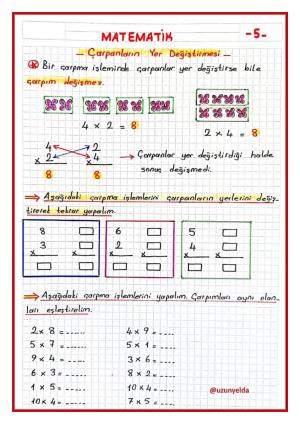 MATEMATİK
-5-
Çarpanların Yer Değiştirmesi
Bir çarpma işleminde çarpanlar yer değiştirse bile
çarpım değişmez.
4 x 2 = 8
2 x 4 = 8
4 2
x 2 x 4
8 8
Çarpanlar yer değiştirdiği halde
sonuç değişmedi.
Aşağıdaki çarpma işlemlerini çarpanların yerlerini değiş-
tirerek tekrar yapalım.
8 6 5
3 2 4
x x x x x x
Aşağıdaki çarpma işlemlerini yapalım. Çarpımları aynı olan-
ları eşleştirelim.
2 x 8 = ...... 4 x 9 = ......
5 x 7 = ...... 5 x 1 = ......
9 x 4 = ...... 3 x 6 = ......
6 x 3 = ...... 8 x 2 = ......
1 x 5 = ...... 4 x 10 = ......
10 x 4 = ...... 7 x 5 = ......
@uzunyelda